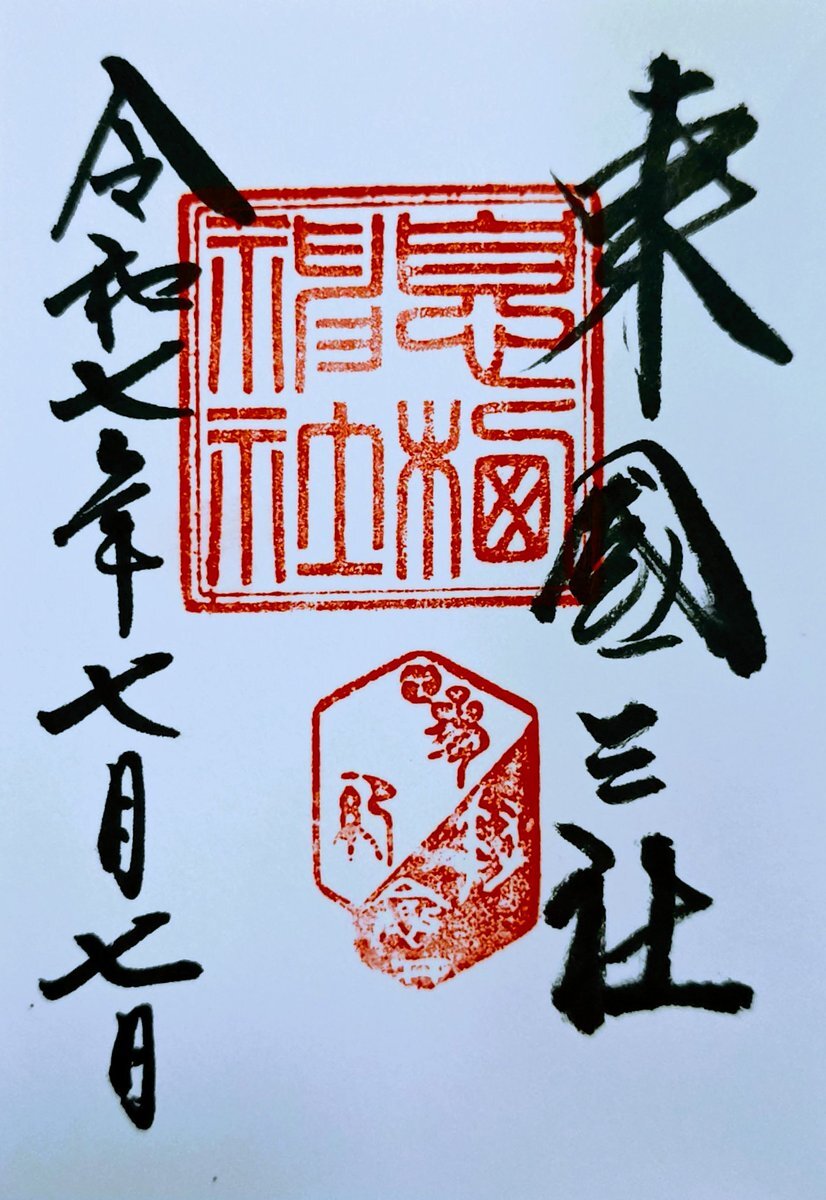 東國三社
息栖神社
令和七年七月七日